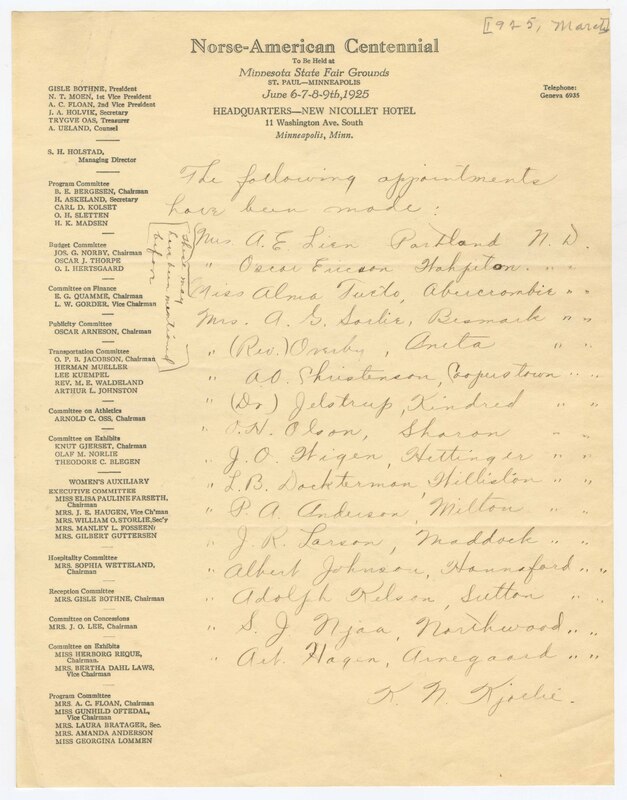 [1925, March]
Norse-American Centennial
To Be Held at
Minnesota State Fair Grounds
ST. PAUL—MINNEAPOLIS
June 6-7-8-9th, 1925
HEADQUARTERS—NEW NICOLLET HOTEL
11 Washington Ave. South
Minneapolis, Minn.
Telephone:
Geneva 6935
GISLE BOTHNE, President
N. T. MOEN, 1st Vice President
A. C. FLOAN, 2nd Vice President
J. A. HOLVIK, Secretary
TRYGVE OAS, Treasurer
A. UELAND, Counsel
S. H. HOLSTAD,
Managing Director
Program Committee
B. E. BERGESEN, Chairman
H. ASKELAND, Secretary
CARL D. KOLSET
O. H. SLETTEN
H. K. MADSEN
Budget Committee
JOS. G. NORBY, Chairman
OSCAR J. THORPE
O. I. HERTSGAARD
Committee on Finance
E. G. QUAMME, Chairman
L. W. GORDER, Vice Chairman
Publicity Committee
OSCAR ARNESON, Chairman
Transportation Committee
O. P. B. JACOBSON, Chairman
HERMAN MUELLER
LEE KUEMPEL
REV. M. E. WALDELAND
ARTHUR L. JOHNSTON
Committee on Athletics
ARNOLD C. OSS, Chairman
Committee on Exhibits
KNUT GJERSET, Chairman
OLAF M. NORLIE
THEODORE C. BLEGEN
WOMEN'S AUXILIARY
EXECUTIVE COMMITTEE
MISS ELISA PAULINE FARSETH,
Chairman
MRS. J. E. HAUGEN, Vice Ch'man
MRS. WILLIAM O. STORLIE, Sec'y
MRS. MANLEY L. FOSSEEN
MRS. GILBERT GUTTERSEN
Hospitality Committee
MRS. SOPHIA WETTELAND,
Chairman
Reception Committee
MRS. GISLE BOTHNE, Chairman
Committee on Concessions
MRS. J. O. LEE, Chairman
Committee on Exhibits
MISS HERBORG REQUE,
Chairman.
MRS. BERTHA DAHL LAWS,
Vice Chairman
Program Committee
MRS. A. C. FLOAN, Chairman
MISS GUNHILD OFTEDAL,
Vice Chairman
MRS. LAURA BRATAGER, Sec.
MRS. AMANDA ANDERSON
MISS GEORGINA LOMMEN
The following appointments
have been made:
these may
have been mentioned
before
Mrs. A. E. Lien Portland N. D.
" Oscar Ericson Wahpeton " "
Miss Alma Tweto, Abercrombie " "
Mrs. A. G. Sorlie, Bismark " "
" (Rev.) Overby, Aneta "
" A.O. Christenson, Cooperstown " "
" (Dr.) Jelstrup, Kindred " "
" O.H. Olson, Sharon " "
" J. O. Wigen, Hettinger " "
" L. B. Dockterman Williston "
" P. A. Anderson, Milton " "
" J. R. Larson, Maddock " "
" Albert Johnson, Hannaford " "
" Adolph Nelson, Sutton " "
" S. J. Njaa, Northwood " "
" Art. Hagen, Arnegaard " "
K. N. Kjorlie.